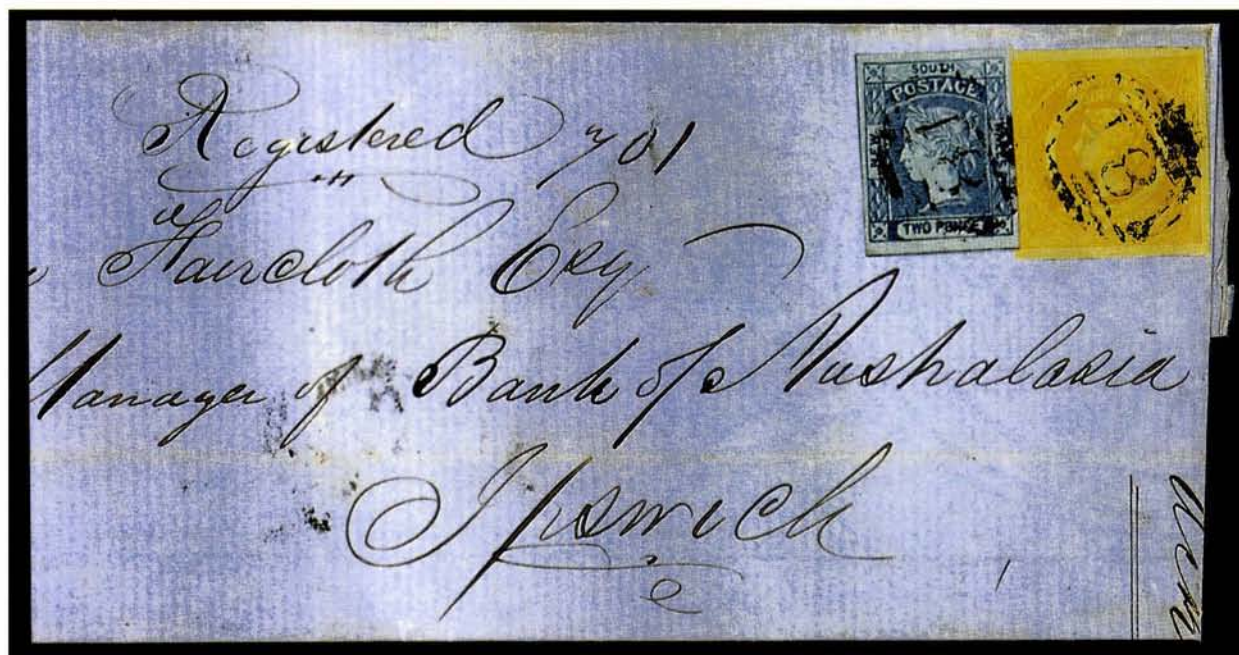 Registered 701
Faircloth Esq
Manager of Bank of Australasia
Ipswich
SOUTH
POSTAGE
TWO PENCE
81